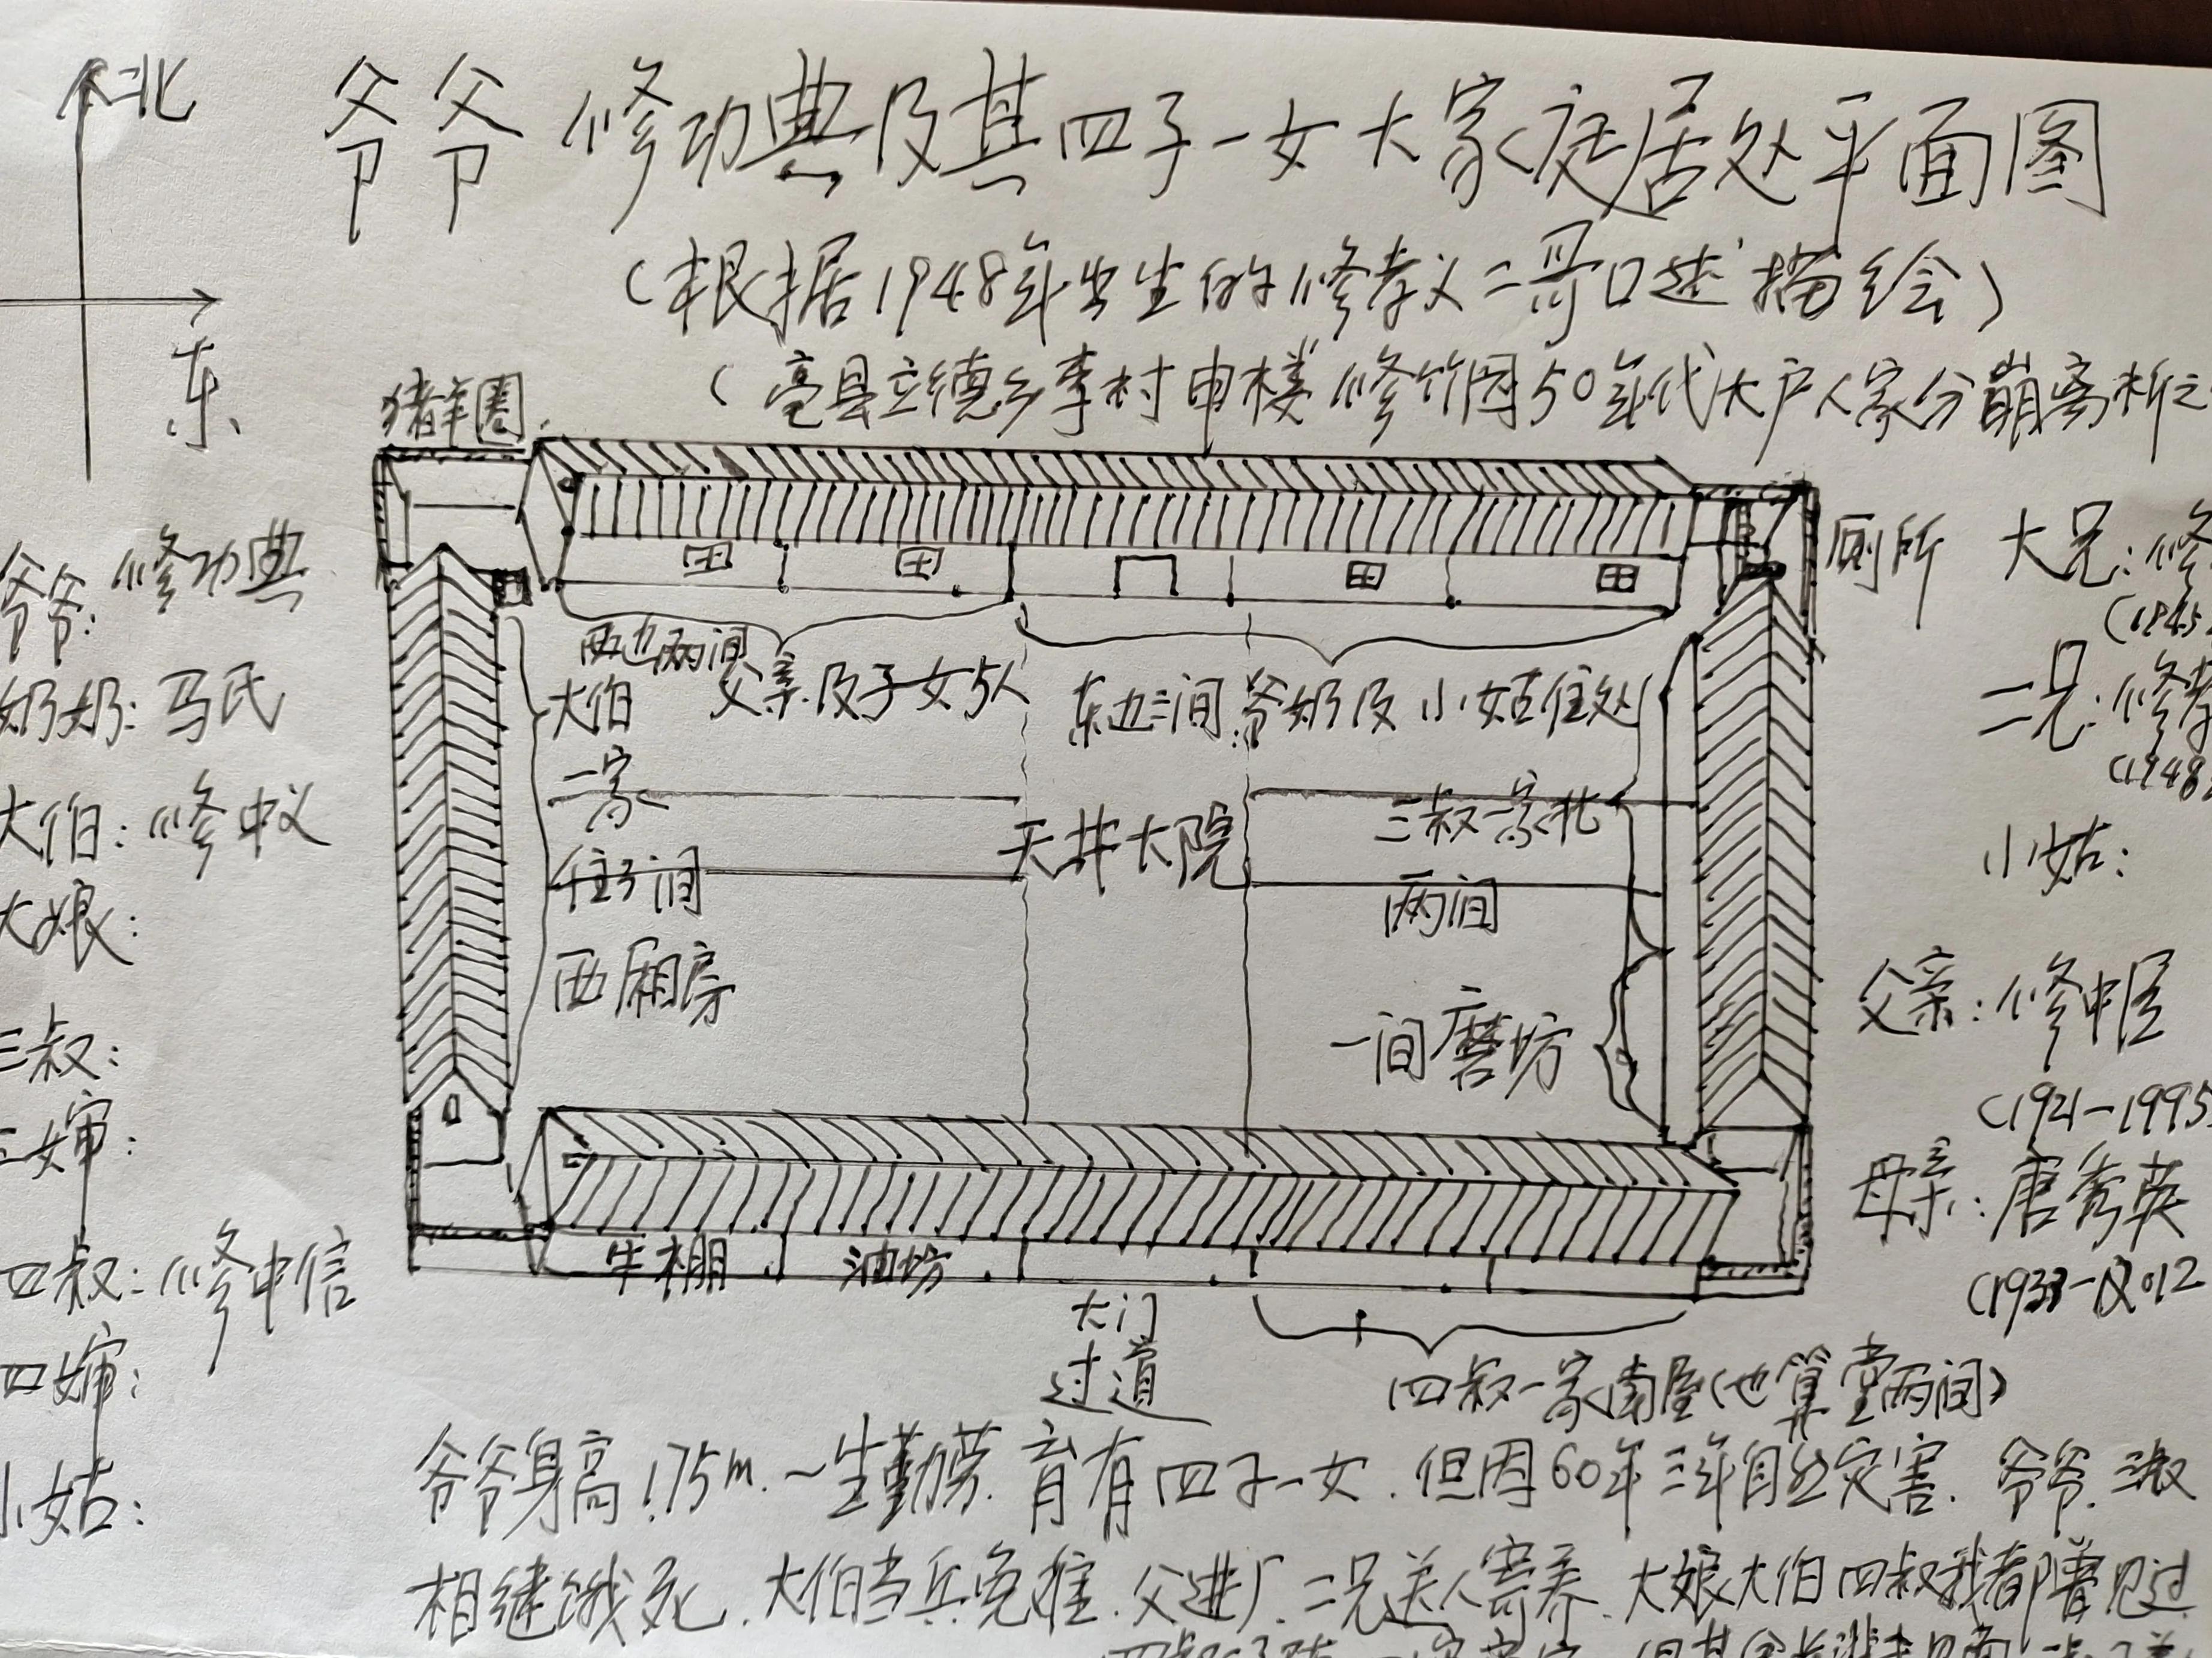 北
东
爷爷修功典及其四子一女大家庭居处平面图
(根据1948年出生的修孝义二哥口述描绘)
(亳县立德乡李村申楼修竹园50年代大户人家分崩离析之
猪羊圈
厕所
爷爷:修功典
奶奶:马氏
大伯:修中义
大娘:
三叔:
三婶:
四叔:修中信
四婶:
小姑:
西边两间
父亲及子女5人
东边三间爷奶及小姑住处
大伯
一家
住3间
西厢房
天井大院
三叔一家北
两间
一间磨坊
牛棚
油坊
大门
过道
四叔一家南屋(也算堂两间)
大兄:修
(1945
二兄:修孝
(1948
小姑:
父亲:修中
(1921-1995
母亲:唐秀英
(1933-2012
爷爷身高1.75m.一生勤劳.育有四子一女.但因60年三年自然灾害.爷爷.三叔
相继饿死.大伯当兵免难.父进厂.二兄送人寄养.大娘大伯四叔我都曾见过